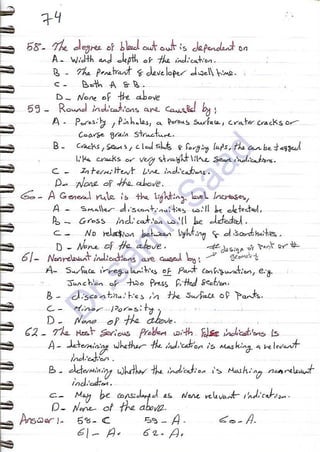 74
58- The degree of bleed out out is dependent on
A- Width and depth of the indication.
B- The Penetrant & developer dwell time.
C- Both A & B.
D- None of the above
59- Round indications are caused by;
A- Porosity, Pinholes, a Porous Surface, Crater cracks or
Coarse grain structure.
B- Cracks, Seams, Cold Shuts & forging laps, that can be
like cracks or very straight line Seam indications.
C- Intermittent line indications.
D- None of the above.
60- A General rule is the lighting level increases,
A- Smaller discontinuities will be detected.
B- Gross indication will be detected.
C- No relation between lighting & discontinuities.
D- None of the above.
61- Nonrelevant indications are caused by; design of Part or the
A- Surface irregularities of Part configuration, e.g.
Junction of two Press fitted Section.
B- discontinuities in the Surface of Parts.
C- Minor Porosity.
D- None of the above.
62- The Most Serious Problem with false indications is
A- determining whether the indication is masking a relevant
Indication.
B- determining whether the indication is Masking nonrelevant
indication.
C- May be considered as None relevant indication.
D- None of the above.
Answer:- 58- C 59- A. 60- A.
61- A. 62- A.